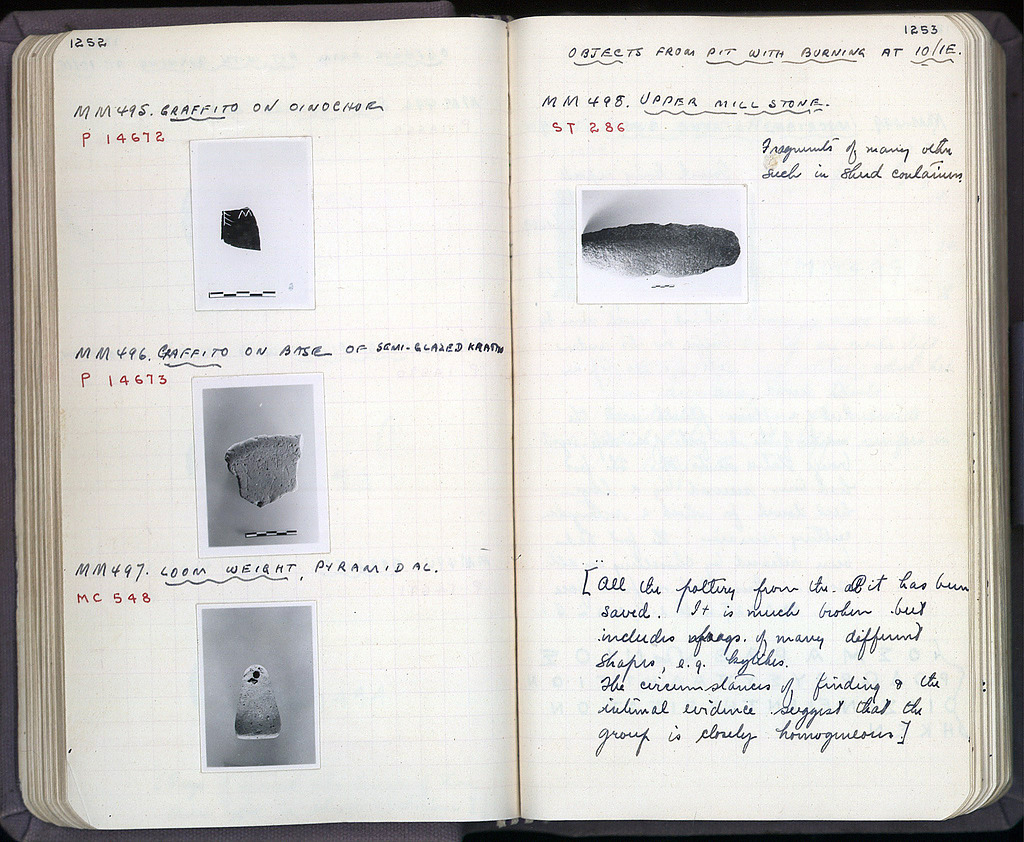 1252
MM495. GRAFFITO ON OINOCHOE
P 14672
MM496. GRAFFITO ON BASE OF SEMI-GLAZED KRATER
P 14673
MM497. LOOM WEIGHT, PYRAMIDAL.
MC 548
1253
OBJECTS FROM PIT WITH BURNING AT 10/IE.
MM498. UPPER MILL STONE.
ST 286
Fragments of many other
such in shed containers.
[All the pottery from the Pit has been
saved. It is much broken but
includes frags. of many different
shapes, e.g. kylikes.
The circumstances of finding & the
internal evidence suggest that the
group is closely homogeneous.]